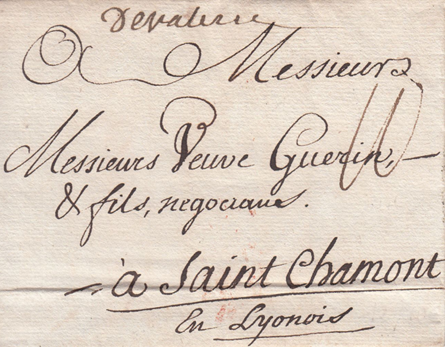 Devalence
A Messieurs
Messieurs Veuve Guerin,
& fils, negocians.
à Saint Chamont
En Lyonois